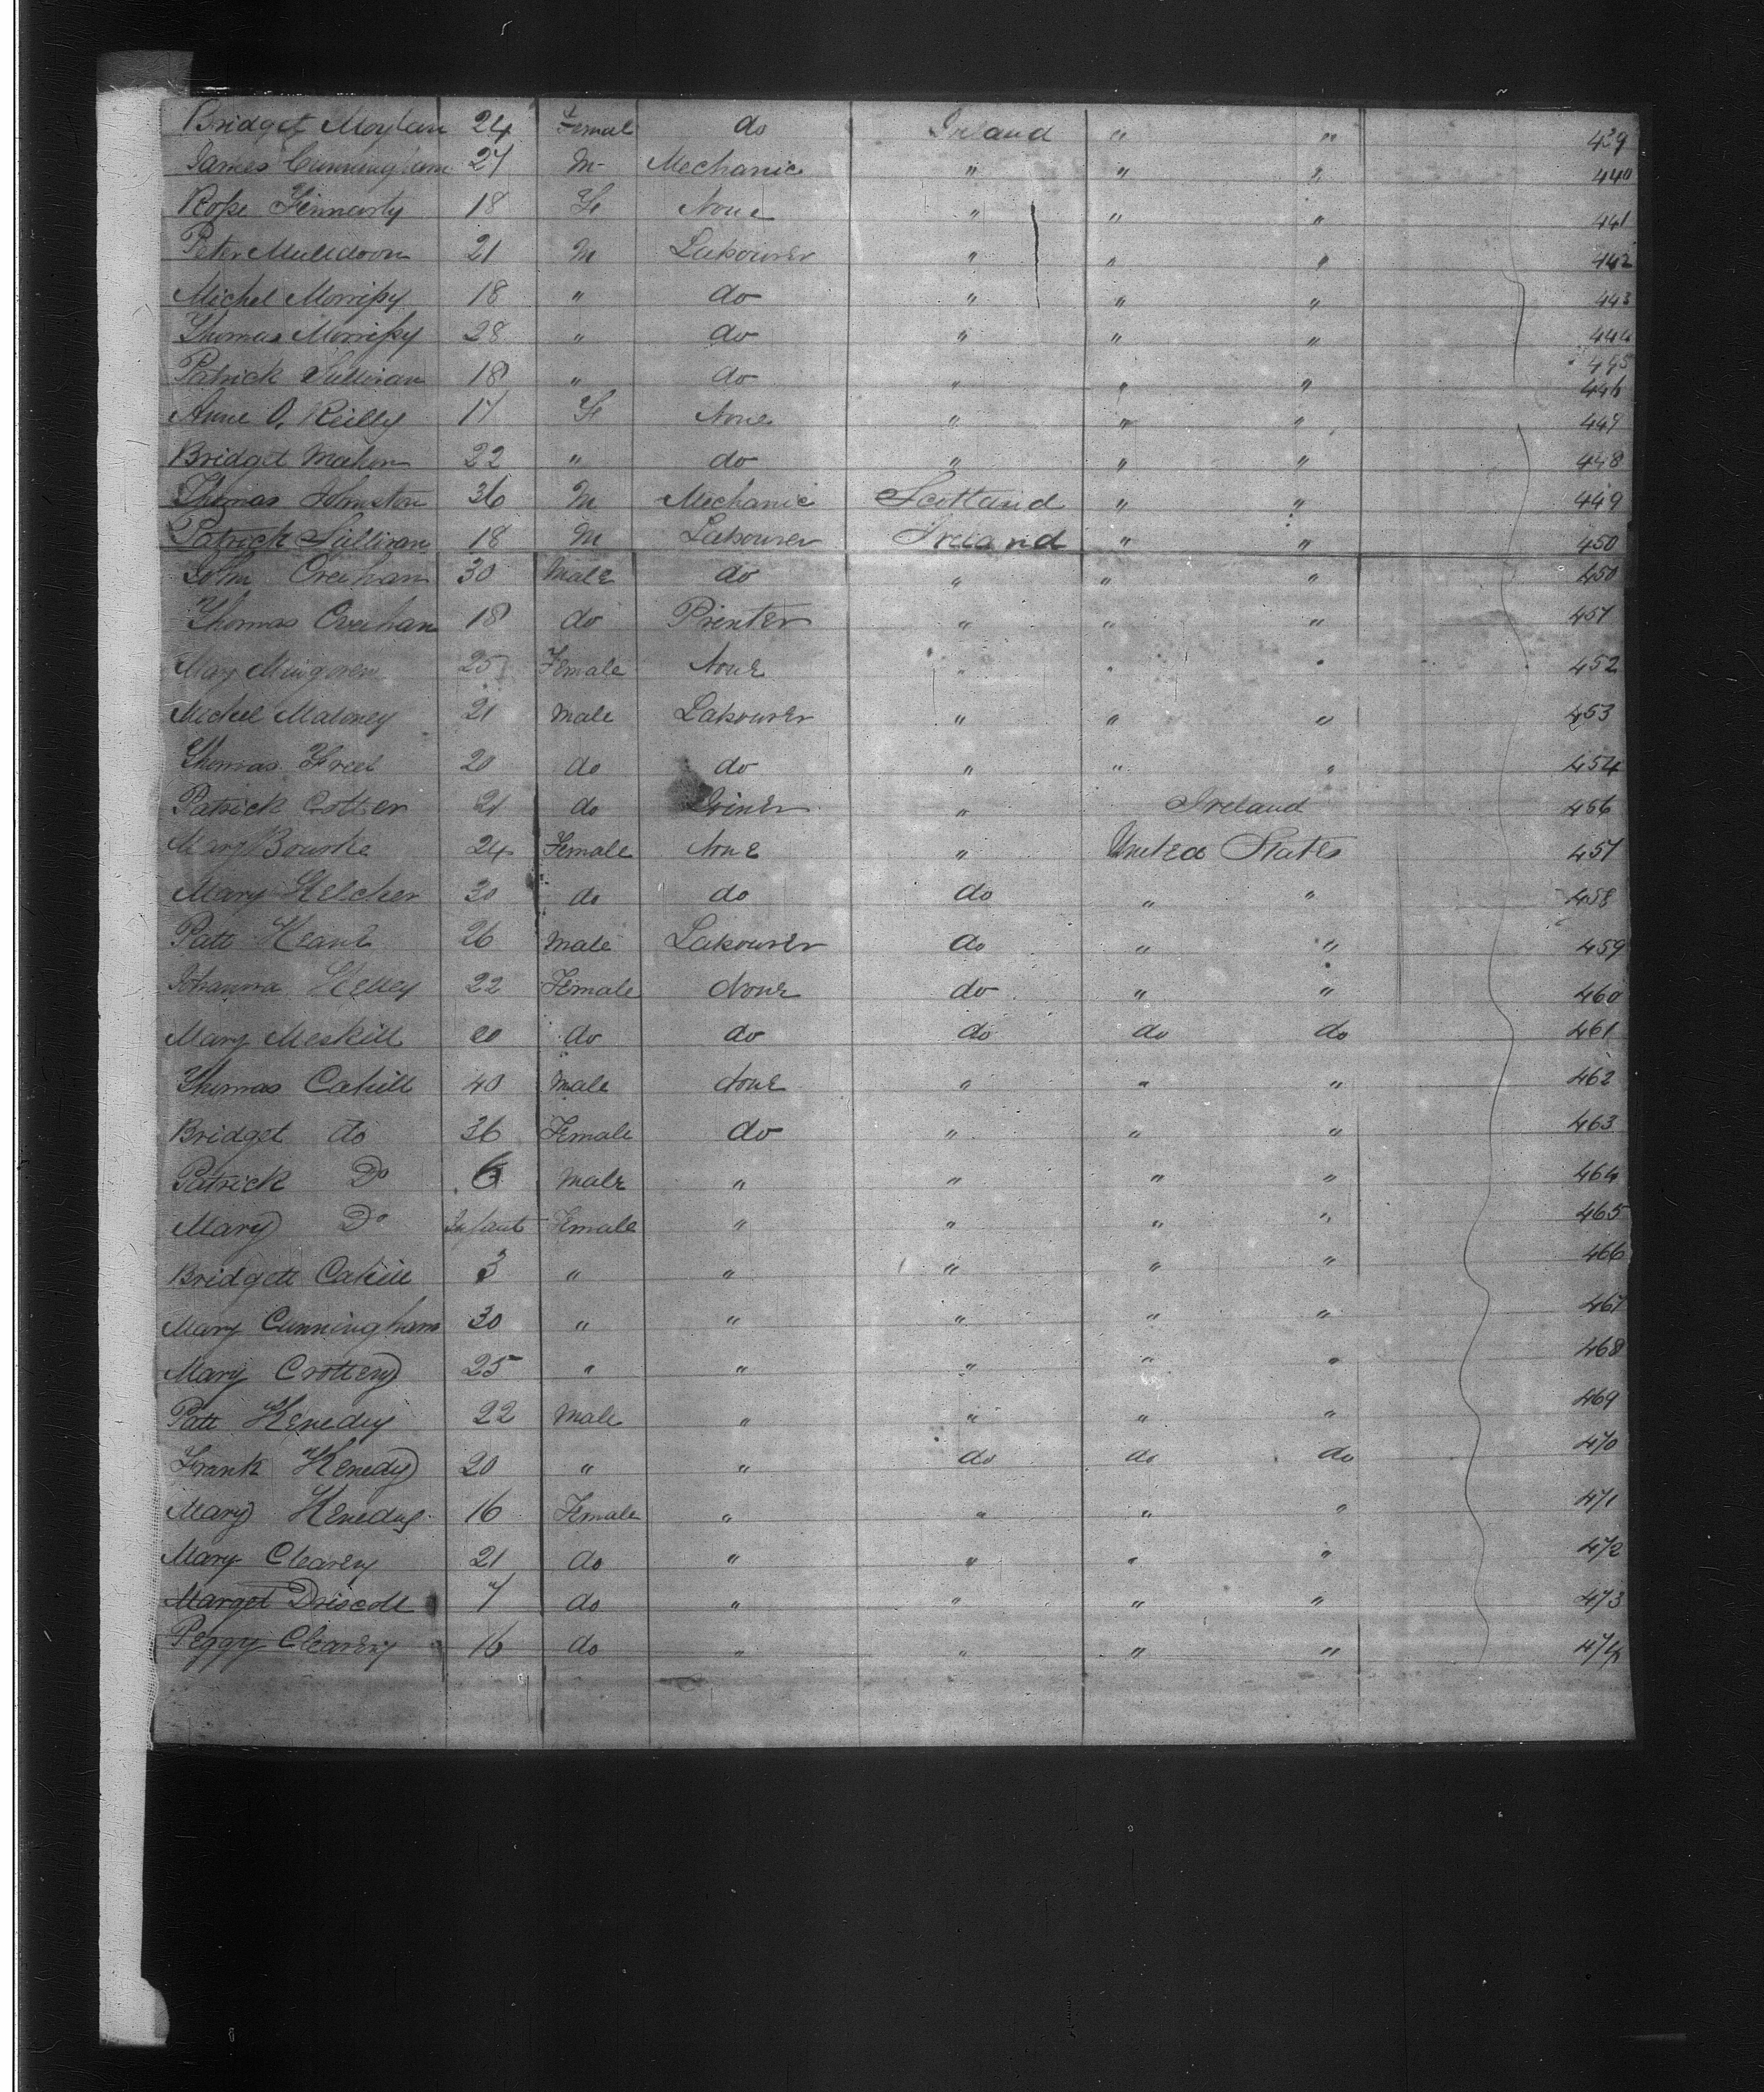 Bridget Moylan 24 Female do Ireland " " 439
James Cunningham 27 M Mechanic " " " 440
Rose Finnarty 18 Fe None " " " 441
Peter Muldoon 21 M Labourer " " " 442
Michel Morrissy 18 " do " " " 443
Thomas Morrissy 28 " do " " " 444
445
Patrick Sullivan 18 " do " " " 446
Anne O, Reilly 17 Fe None " " " 447
Bridget Mahon 22 " do " " " 448
Thomas Johnston 36 M Mechanic Scotland " " 449
Patrick Sullivan 18 M Labourer Ireland " " 450
John Creehan 30 Male do " " " 450
Thomas Creehan 18 do Printer " " " 451
Mary 25 Female None " " " 452
Michel Maloney 21 Male Labourer " " " 453
Thomas Freel 20 do do " " " 454
Patrick Cotter 21 do Joiner " Ireland 456
Mary Bourke 24 Female None " United States 457
Mary Kelcher 30 do do do " " 458
Patt Keane 26 Male Labourer do " " 459
Johanna Kelley 22 Female None do " " 460
Mary Meskill 20 do do do do do 461
Thomas Cahill 40 Male None " " " 462
Bridget do 36 Female do " " " 463
Patrick Do 6 Male " " " " 464
Mary Do Infant Female " " " " 465
Bridgett Cahill 3 " " " " " 466
Mary Cunningham 30 " " " " " 467
Mary Crottery 25 " " " " " 468
Patt Kenedy 22 Male " " " " 469
Frank Kenedy 20 " " do do do 470
Mary Kenedy 16 Female " " " " 471
Mary Clearey 21 do " " " " 472
Marget Driscoll 7 do " " " " 473
Peggy Clearey 16 do " " " " 474